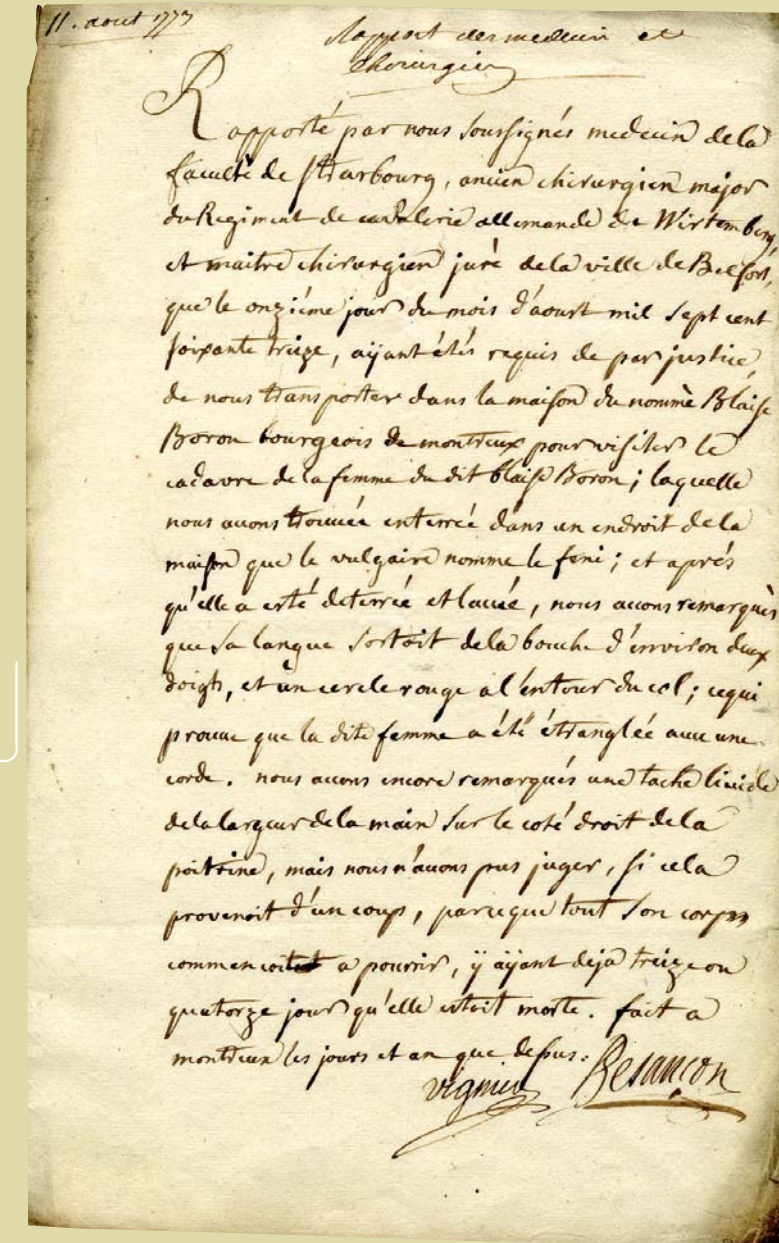 11. aout 1773
Rapport des medecin et
chirurgien
Rapporté par nous soussignés medecin de la
faculté de strasbourg, ancien chirurgien major
du Regiment de cavalerie allemande de Wirtemberg,
et maitre chirurgien juré de la ville de Belfort,
que le onziéme jour du mois d'aoust mil sept cent
soixante treize, aÿant étés requis de par justice,
de nous transporter dans la maison du nommé Blaise
Boron bourgeois de montreux pour visiter le
cadavre de la femme du dit blaise Boron; laquelle
nous avons trouvée enterrée dans un endroit de la
maison que le vulgaire nomme le feni; et aprés
qu'elle a esté deterrée et lavée, nous avons remarqués
que sa langue sortoit de la bouche d'environ deux
doigts, et un cercle rouge a l'entour du col; ce qui
prouve que la dite femme a été étranglée avec une
corde. nous avons encore remarqués une tache livide
de la largeur de la main sur le coté droit de la
poitrine, mais nous n'avons pus juger, si cela
provenoit d'un coup, parceque tout son corps
commencoit a pourrir, ÿ aÿant deja treize ou
quatorze jour qu'elle estoit morte. fait a
montreux les jours et an que dessus.
vignier Besançon